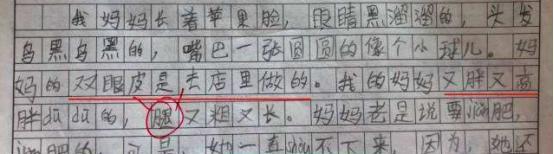 我妈妈长着苹果脸，眼睛黑溜溜的，头发
乌黑乌黑的，嘴巴一张圆圆的像个小球儿。妈
妈的双眼皮是去店里做的。我的妈妈又胖又高
胖dūdū的，腿又粗又长。妈妈老是说要jiǎn肥，
肥的，可是，她一直shòu不下来，因为，她还